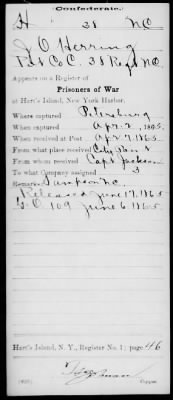 Confederate.
H 38 NC
J O Herring
Pvt Co C. 38 Regt NC.
Appears on a Register of
Prisoners of War
at Hart's Island, New York Harbor.
Where captured Petersburg
When captured Apr. 2, 1865.
When received at Post Apr 7, 1865
From what place received City Point
From whom received Capt Jackson
To what company assigned 3
Remarks Sampson NC
Released June 17, 1865
G.O. 109 June 6, 1865
Hart's Island, N. Y., Register No. 1; page 46
Copyist.